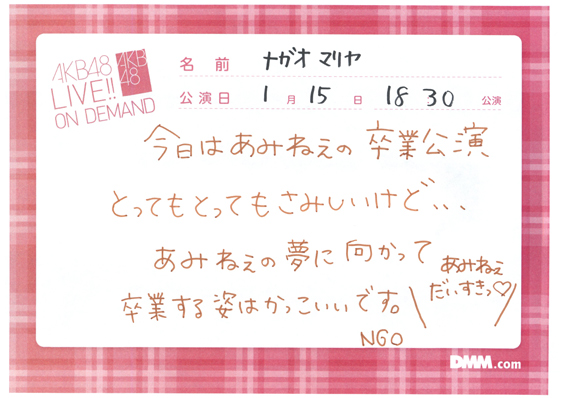 AKB48
LIVE!!
ON DEMAND
AKB
48
名前 ナガオ マリヤ
公演日 1月15日 18 30 公演
今日はあみねぇの卒業公演
とってもとってもさみしいけど、、、
あみねぇの夢に向かって
卒業する姿はかっこいいです。
あみねぇ
だいすきっ♡
NGO
DMM.com